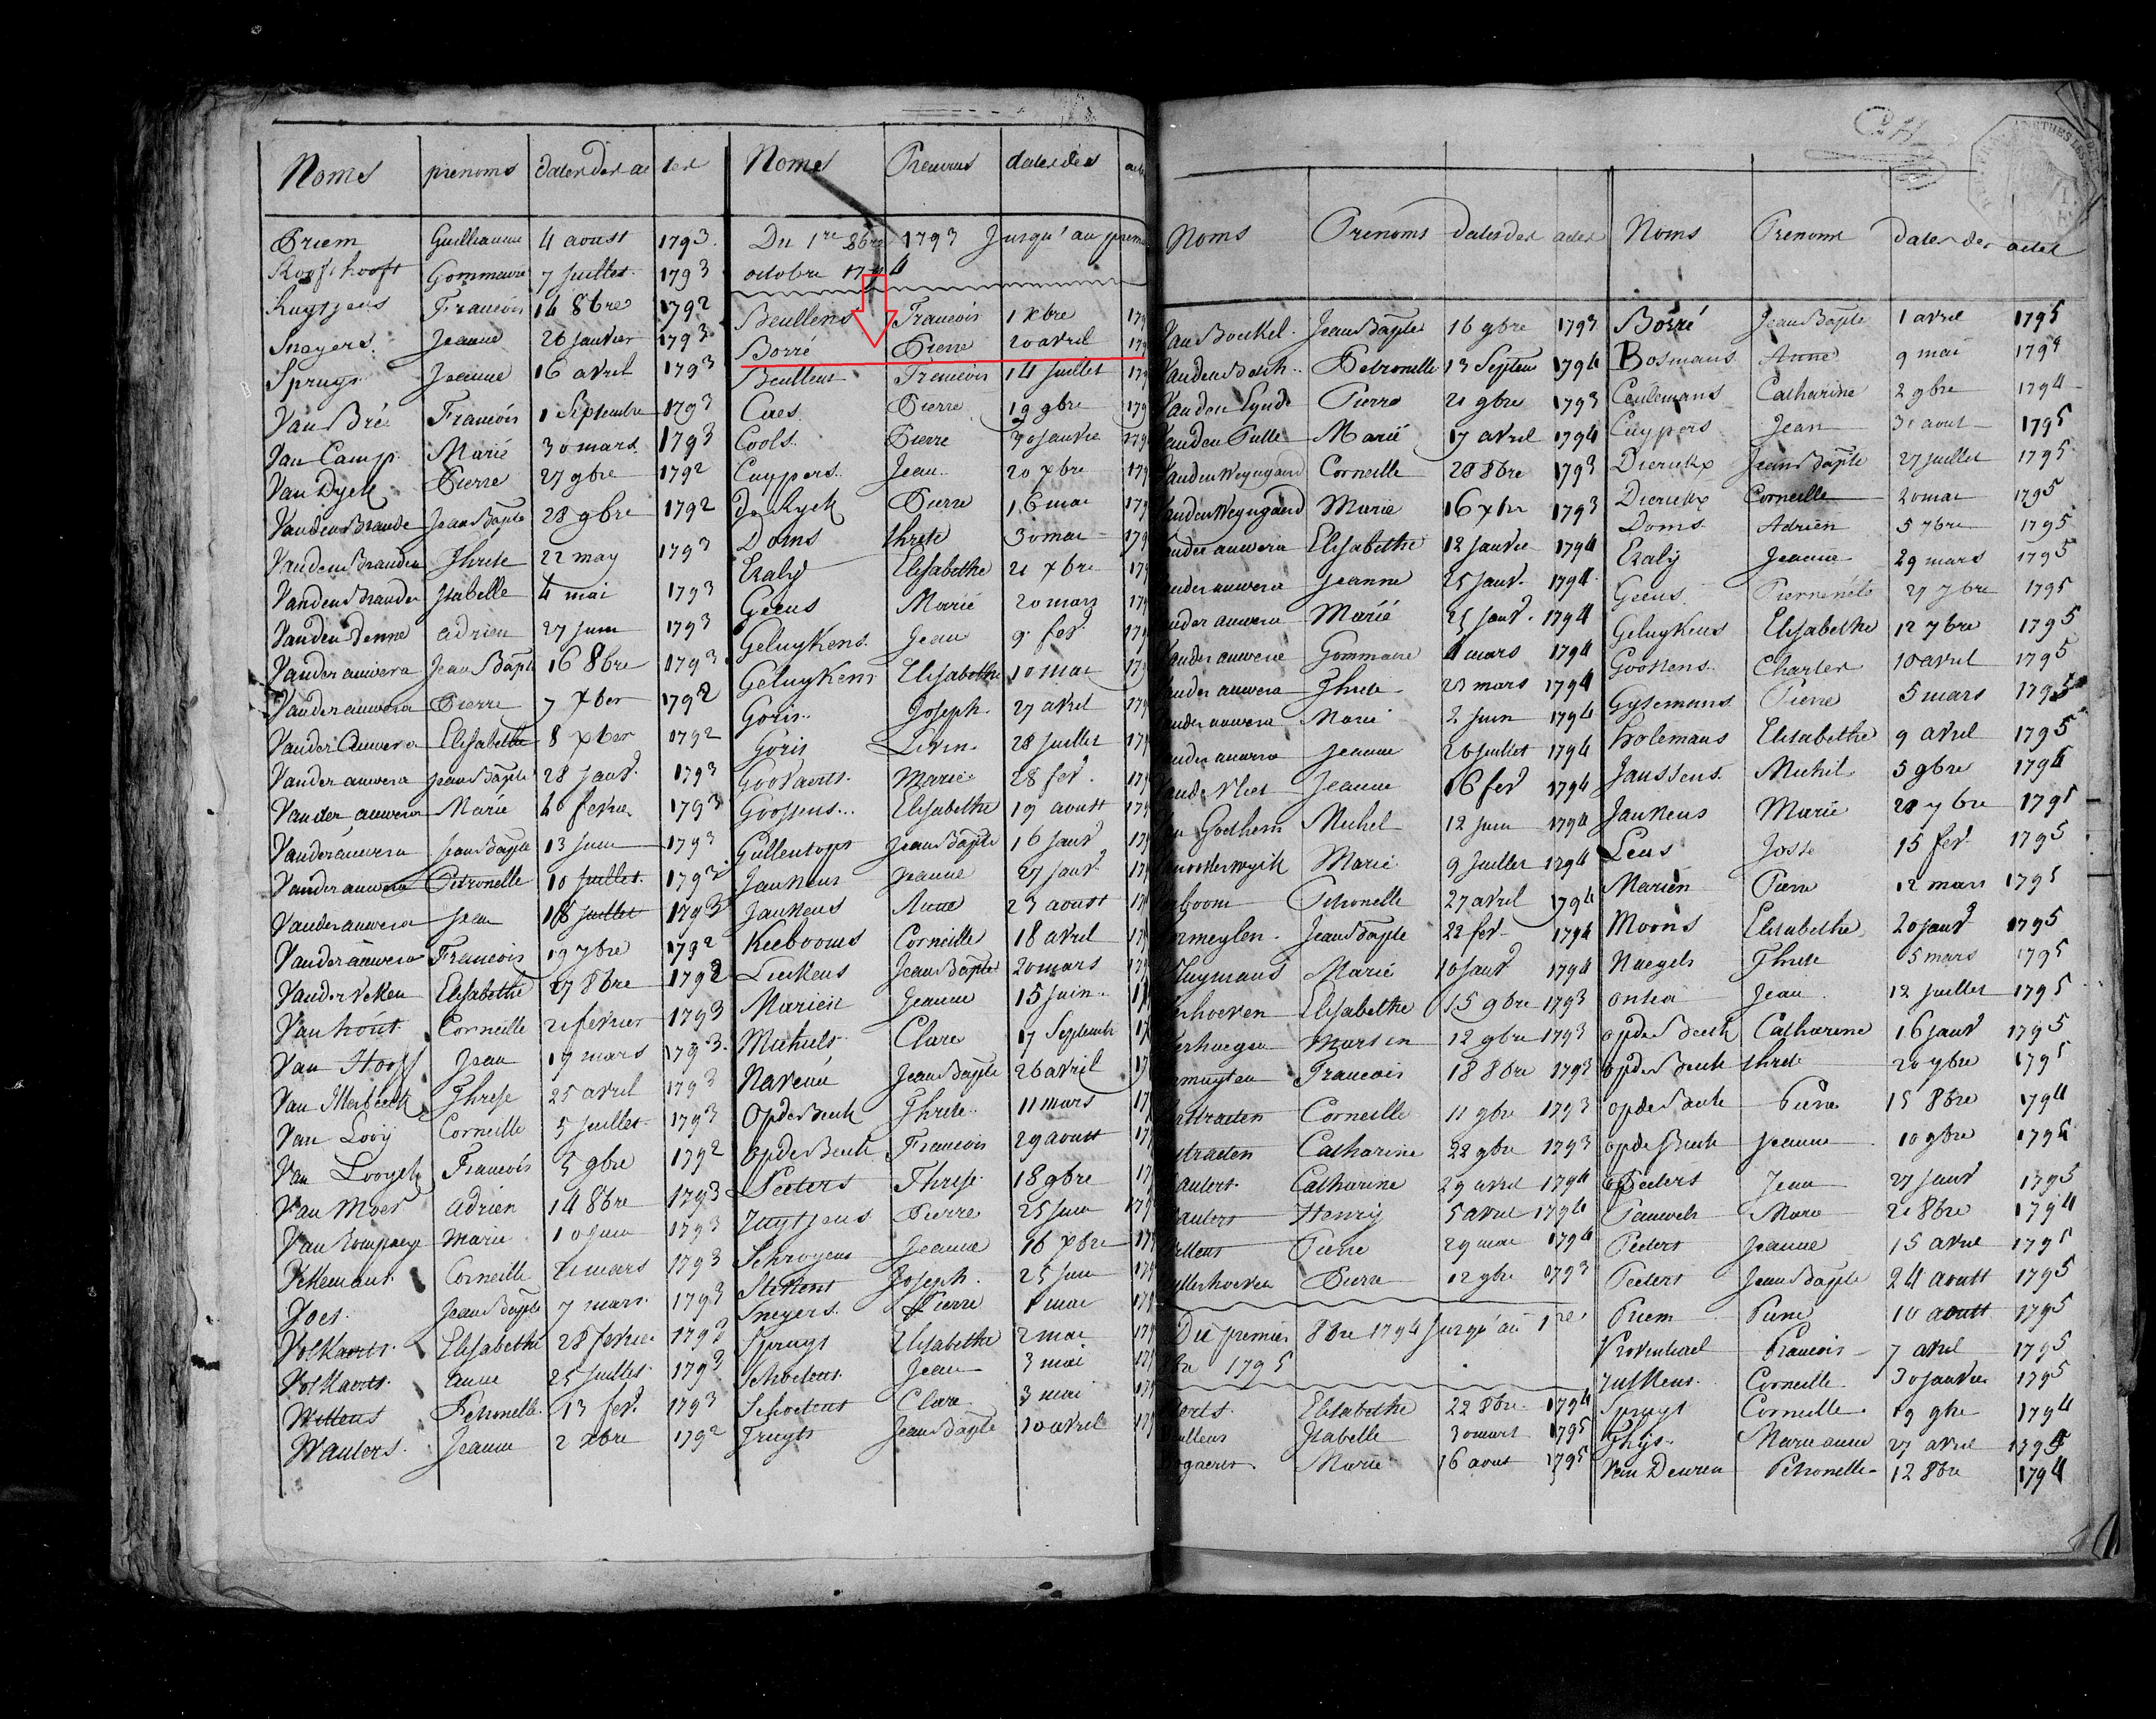 Noms prenoms dates des ac tes
Priem Guilliaume 4 aoust 1793
Roofthooft Gommaire 7 juillet 1793
Ruytjens Francois 14 8bre 1792
Sneyers Jeanne 26 janvier 1793
Spruyt Jeanne 16 avril 1793
Van Bré Francois 1 Septembre 1793
Van Camp Marie 30 mars 1793
Van Dyck Pierre 27 gbre 1792
Vanden Brande Jean Bapte 28 gbre 1792
Vanden Branden Threse 22 may 1793
Vanden Brander Isabelle 4 mai 1793
Vanden Denne adrien 27 juin 1793
Vander auwera Jean Bapte 16 8bre 1793
Vander auwera Pierre 7 xber 1792
Vander Auwera Elisabethe 8 xber 1792
Vander auwera jean Bapte 28 janv. 1793
Vander auwera Marie fevrier 1793
Vander auwera jean Bapte 13 juin 1793
Vander auwera Petronelle 10 juillet 1793
Vander auwera jean juillet 1793
Vander auwera Francois 19 7bre 1792
Vander Veken Elisabethe 27 8bre 1792
Van hout Corneille 21 fevrier 1793
Van Hooff Jean 19 mars 1793
Van Itterbeeck Threse 25 avril 1793
Van Looÿ Corneille 5 juillet 1793
Van Francois 5 gbre 1792
Van Moer adrien 14 8bre 1793
Van Rompaeye Marie 10 juin 1793
Corneille mars 1793
Voes Jean Bapte 7 mars 1793
Volkaerts Elisabethe 28 fevrier 1793
Volkaerts anne 25 juillet 1793
Willens Petronelle 13 fev. 1793
Wauters Jeanne 2 xbre 1792
Noms Prenoms dates des actes
Du 1re 8bre 1793 Jusqu'au premie
octobre 1794
Beullens Francois 1 xbre 179
Borré Pierre 20 avril 179
Beullens Francois 14 juillet 179
Caes Pierre 19 gbre 179
Cools Pierre 30 janvie 179
Cuypers Jean 20 xbre 179
De Ryck Pierre 16 mai 179
Doms threse 30 mai 179
Eraly Elisabethe 21 xbre 179
Geens Marie 20 mars 179
Geluykens Jean 9 fev 179
Geluykens Elisabethe 10 mai 179
Goris Joseph 27 avril 179
Goris Livin 28 juillet 179
Goovaerts Marie 28 fev. 179
Goossens Elisabethe 19 aoust 179
Gullentops Jean Bapte 16 janv 179
Jankens jeanne 27 janv 179
Jankens Anne 23 aoust 179
Keebooms Corneille 18 avril 179
Luckens Jean Bapte 20 mars 179
Marien Jeanne 15 juin 17
Michiels Clare 17 Septemb 17
Naveau Jean Bapte 26 avril 17
Op de Beeck Threse 11 mars 17
Op de Beeck Francois 29 aoust 17
Peeters Threse 18 gbre 17
Ruytjens Pierre 25 juin 179
Schroyens Jeanne 16 xbre 179
Stekens Joseph 25 juin 179
Sneyers Pierre 1 mai 179
Spruyt Elisabethe 2 mai 179
Schoetens Jean 3 mai 179
Schoetens Clare 3 mai 179
Truyts Jean Bapte 10 avril 179
Noms Prenoms dates des actes
Van Bouckel Jean Bapte 16 gbre 1793
Vanden Bosch Petronelle 13 Septem 1794
Vanden Eynde Pierre 21 gbre 1793
Vanden Putte Marie 17 avril 1794
Vanden Weyngaerd Corneille 28 8bre 1793
Vanden Weyngaerd Marie 16 xbr 1793
ander auwera Elisabethe 12 janvie 1794
ander auwera Jeanne 25 janv. 1794
ander auwera Marie 25 janv. 1794
ander auwera Gommaire 4 mars 1794
ander auwera Threse 23 mars 1794
ander auwera Marie 2 juin 1794
ander auwera Jeanne 26 juillet 1794
ande Vliet Jeanne 16 fev 1794
Gothem Michel 12 juin 1794
Marie 9 juillet 1794
rboom Petronelle 27 avril 1794
rmeylen Jean Bapte 22 fev 1794
luymans Marie 10 janv 1794
rhoeven Elisabethe 15 gbre 1793
erhaegen Marten 12 gbre 1793
rmuyten Francois 18 8bre 1793
rstraeten Corneille 11 gbre 1793
straeten Catharine 22 gbre 1793
auters Catharine 29 avril 1794
auters Henry 5 avril 1794
illens Pierre 29 mai 1794
yllerhoeven Pierre 12 gbre 1793
Du premier 8bre 1794 jusqu'au 1re
8bre 1795
aerts Elisabethe 22 8bre 1794
eullens Isabelle 30 mars 1795
ogaerts Marie 16 aout 1795
Noms Prenoms dates des actes
Borré Jean Bapte 1 avril 1795
Bosmans Anne 9 mai 1795
Ceulemans Catharine 2 gbre 1794
Cuypers Jean 31 aout 1795
Dierickx Jean Bapte 27 juillet 1795
Dierickx Corneille 20 mai 1795
Doms Adrien 5 7bre 1795
Eraly Jeanne 29 mars 1795
Geens 27 7bre 1795
Geluykens Elisabethe 12 7bre 1795
Goossens Charles 10 avril 1795
Gysemans Pierre 5 mars 1795
holemans Elisabethe 9 avril 1795
Janssens Michel 5 gbre 1794
Jankens Marie 28 7bre 1795
Lens Josse 15 fev. 1795
Marien Pierre 12 mars 1795
Moons Elisabethe 20 janv 1795
Naegels Threse 5 mars 1795
onkea Jean 12 juillet 1795
op de Beeck Catharine 16 janv 1795
op de Beeck threse 20 7bre 1795
op de Beeck Pierre 15 8bre 1794
op de Beeck Jeanne 10 gbre 1794
Peeters Jean 27 janv 1795
Pauwels Marie 21 8bre 1794
Peeters Jeanne 15 avril 1795
Peeters Jean Bapte 24 aoust 1795
Priem Pierre 10 aoust 1795
Francois 7 avril 1795
Corneille 30 janvier 1795
Spruyt Corneille 19 gbre 1794
Thijs Marie anne 27 avril 1795
Van Deuren Petronelle 12 8bre 1794